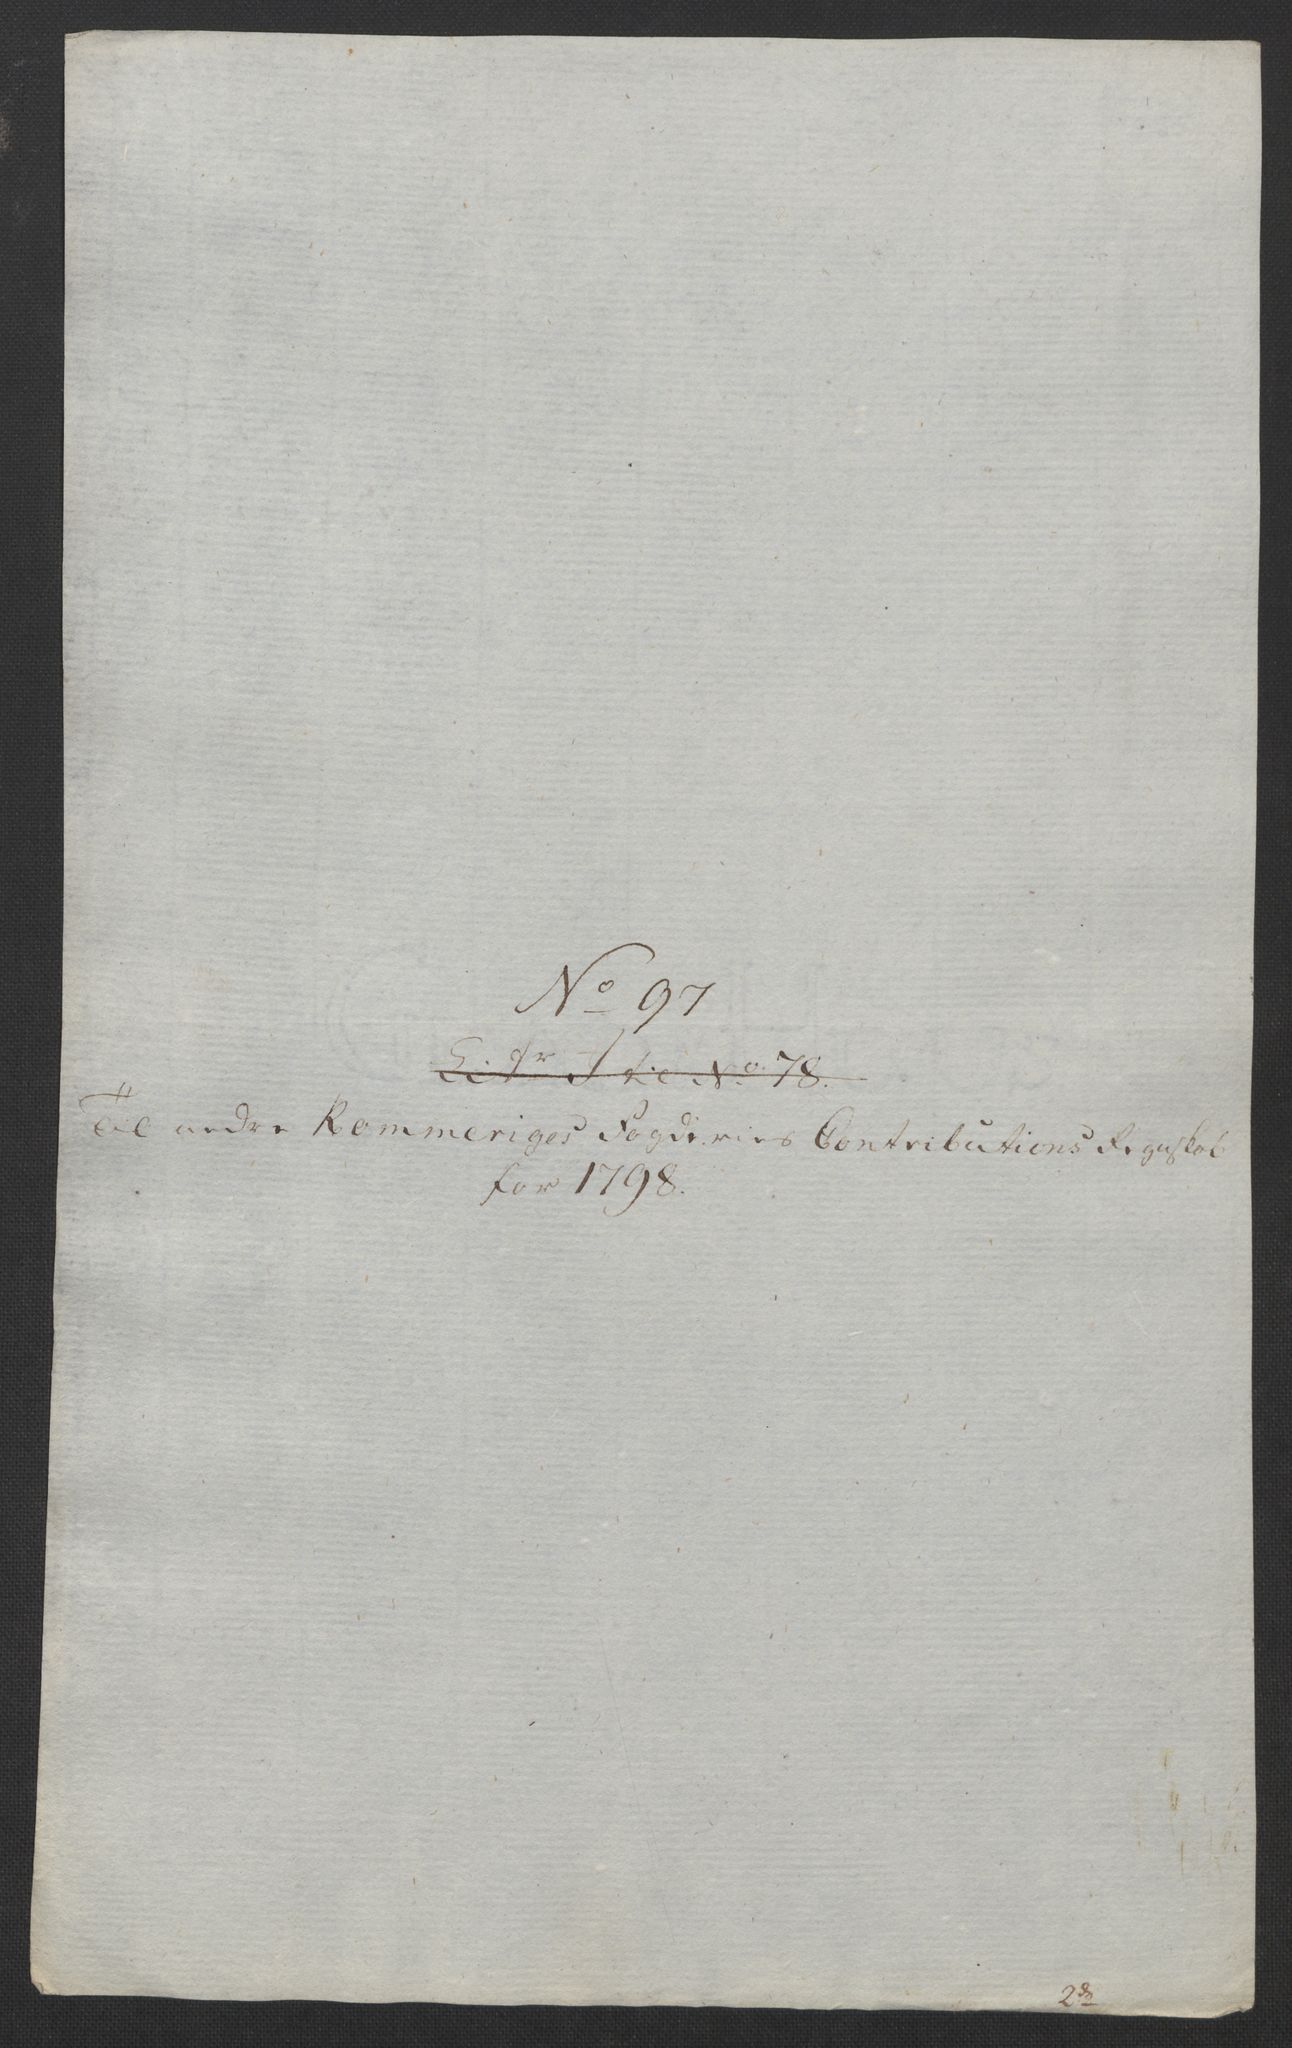 No 97
Litr No 78.
Til nedre Rommeriges Fogderies Contributions Regnskab
for 1798.